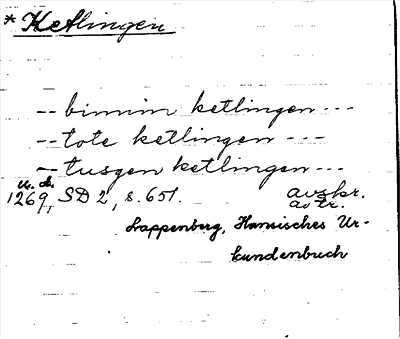 * Ketlingen
-- binnin ketlingen ---
-- tote ketlingen ---
-- tusgen ketlingen ---
u. d.
1269, SD 2, s. 651. avskr.
av tr.
Lappenberg, Hansisches Ur-
kundenbuch